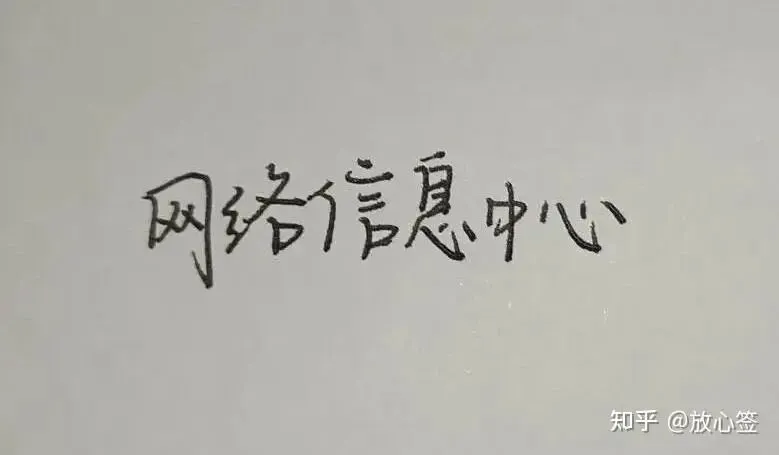 网络信息中心
知乎 @放心签